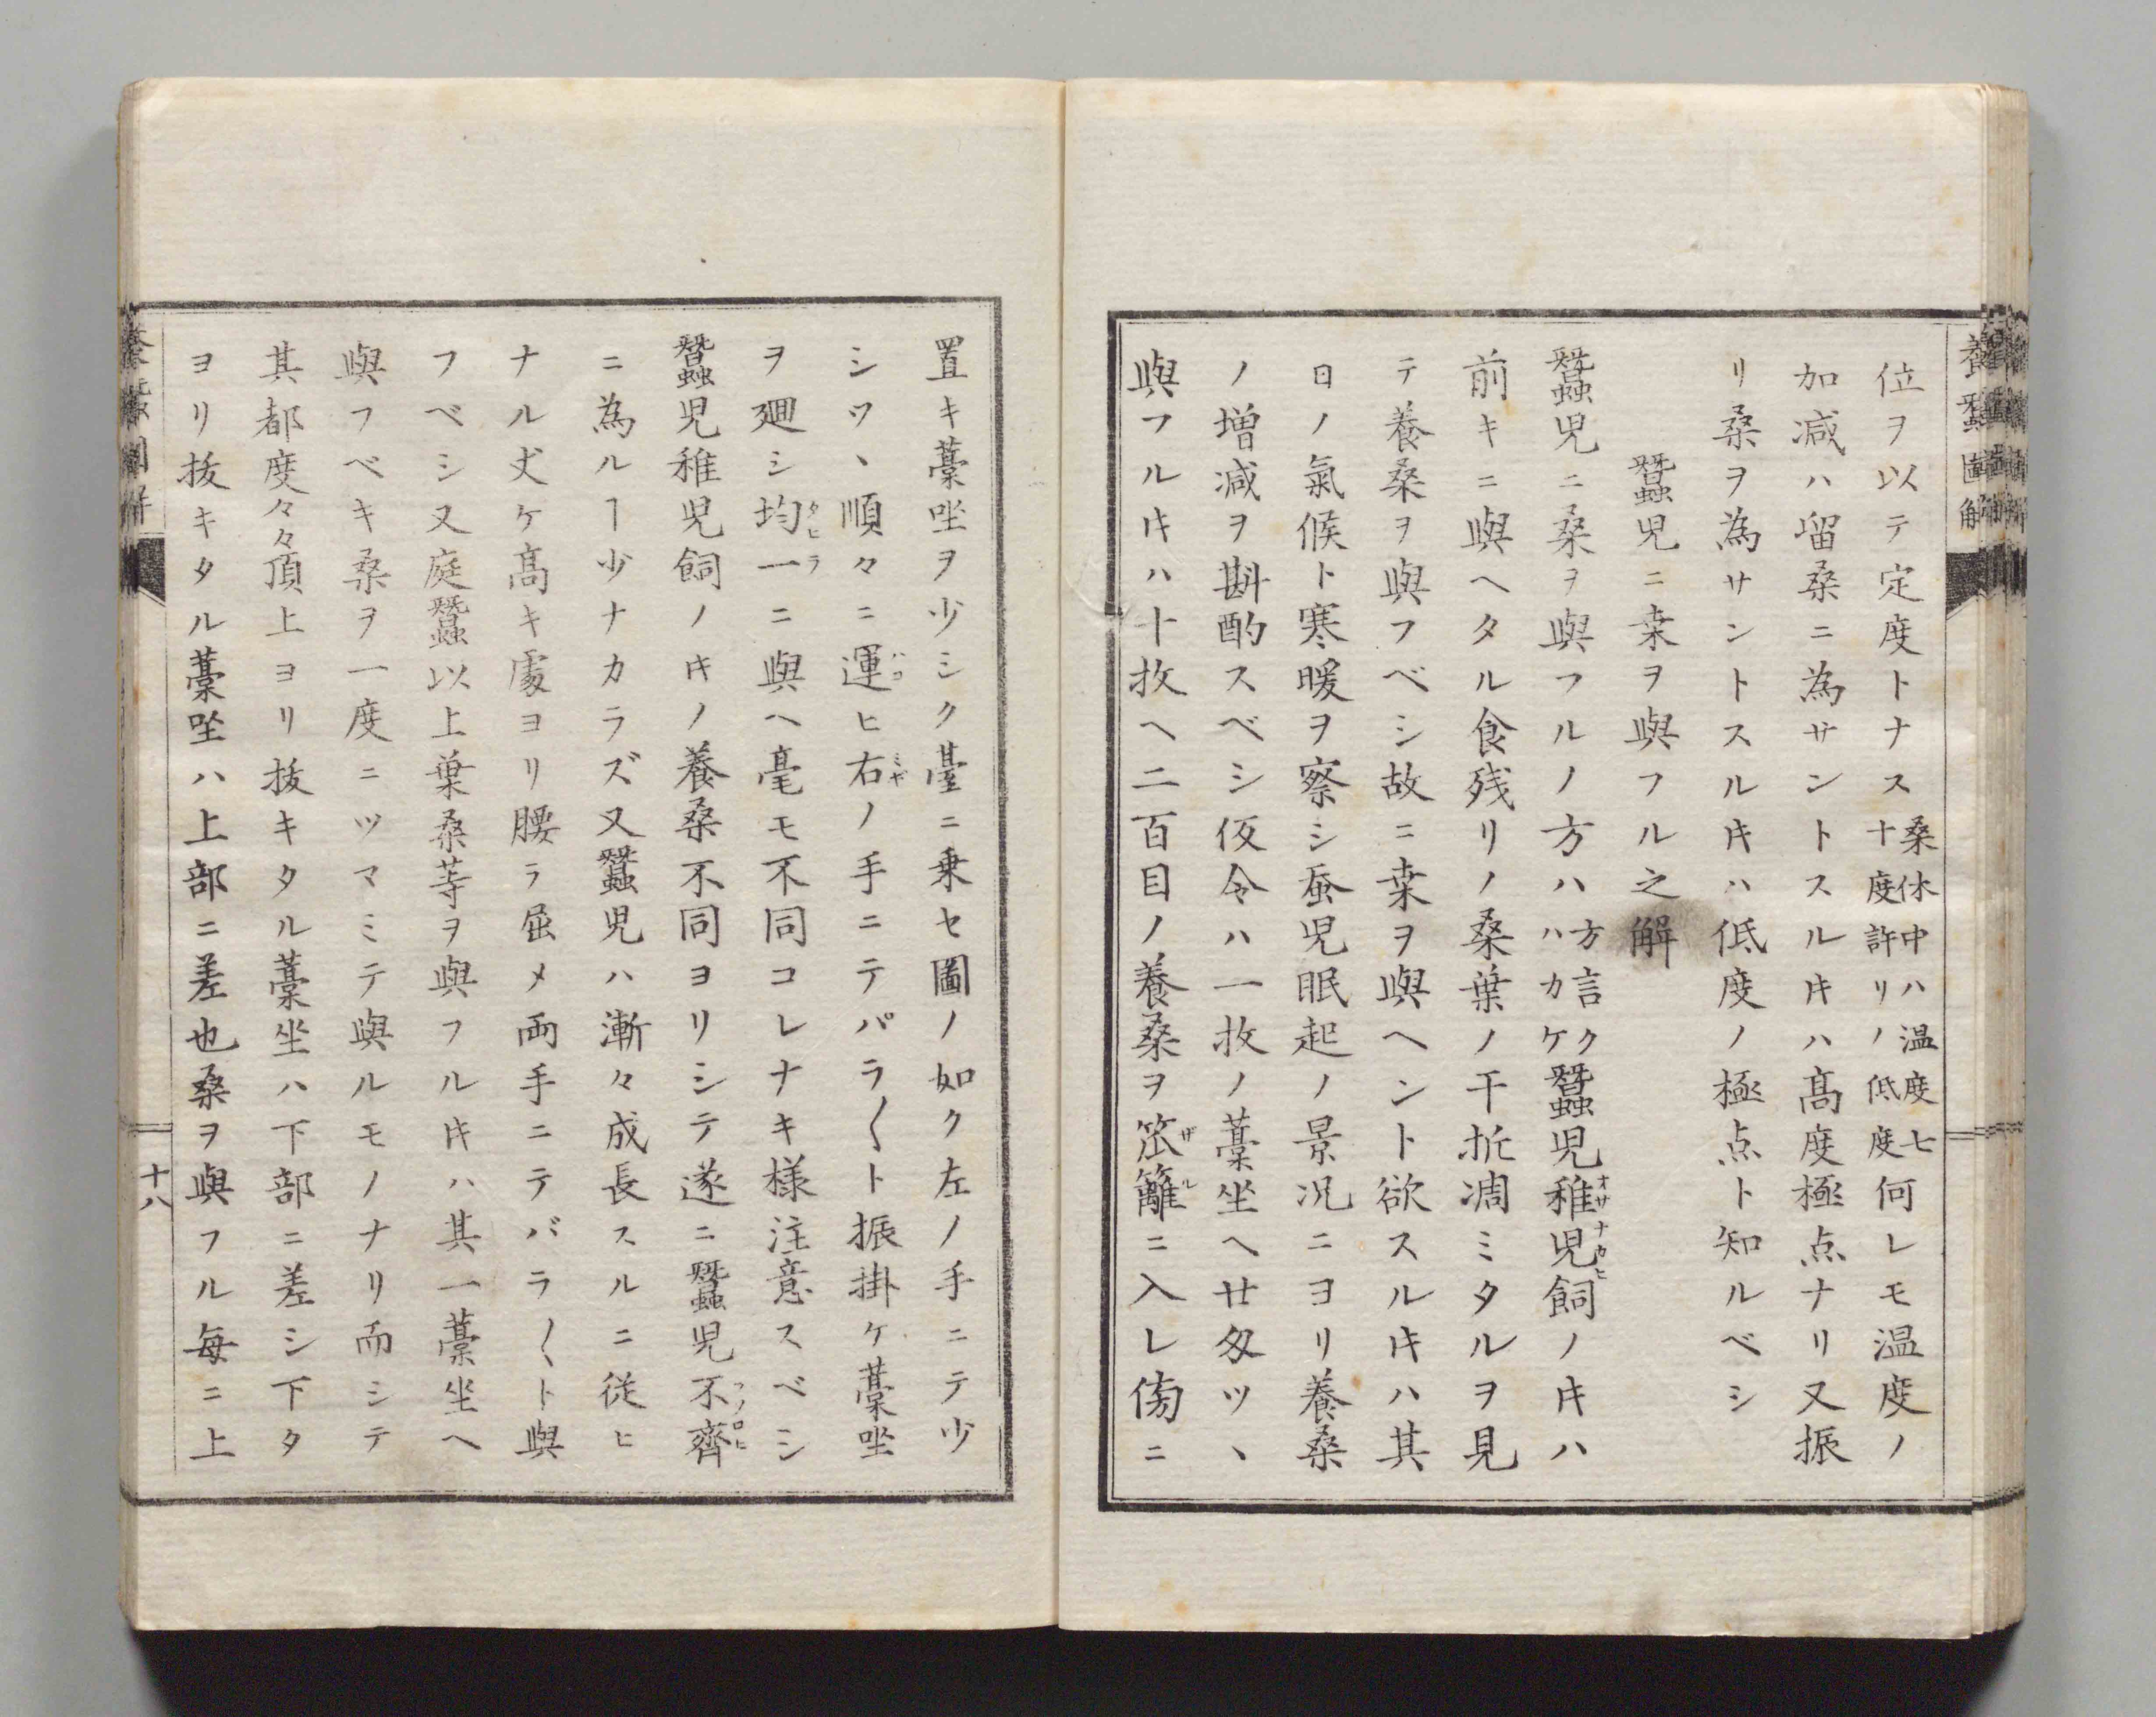 養蚕圖解
位ヲ以テ定度トナス桑休中ハ温度七十度許リノ低度何レモ温度ノ
加減ハ畄桑ニ為サントスル𪜈ハ髙度極点ナリ又振
リ桑ヲ為サントスル𪜈ハ低度ノ極点ト知ルベシ
蠶児ニ桒ヲ與フル之解
蠶児ニ桑ヲ與フルノ方ハ方言クハカケ蠶児稚児飼ノ𪜈ハ
前キニ與ヘタル食残リノ桑葉ノ干折凋ミタルヲ見
テ養桑ヲ與フベシ故ニ桒ヲ與ヘント欲スル𪜈ハ其
日ノ氣候ト寒暖ヲ察シ蚕児眠起ノ景况ニヨリ養桑
ノ増減ヲ斟酌スベシ仮令ハ一枚ノ藁坐ヘ廿匁ツヽ
與フル𪜈ハ十枚ヘ二百目ノ養桑ヲ笊籬ニ入レ傍ニ
置キ藁坐ヲ少シク臺ニ乗セ圖ノ如ク左ノ手ニテ少
シツヽ順々ニ運ヒ右ノ手ニテパラ〱ト振掛ケ藁坐
ヲ廻シ均一ニ與ヘ毫モ不同コレナキ様注意スベシ
蠶児稚児飼ノ𪜈ノ養桑不同ヨリシテ遂ニ蠶児不齊
ニ為ルヿ少ナカラズ又蠶児ハ漸々成長スルニ従ヒ
ナル丈ケ髙キ處ヨリ腰ヲ屈メ両手ニテバラ〱ト與
フベシ又庭蠶以上葉桑等ヲ與フル𪜈ハ其一藁坐ヘ
與フベキ桑ヲ一度ニツマミテ與ルモノナリ而シテ
其都度々々頂上ヨリ抜キタル藁坐ハ下部ニ差シ下タ
ヨリ抜キタル藁坐ハ上部ニ差也桑ヲ與フル毎ニ上
十八